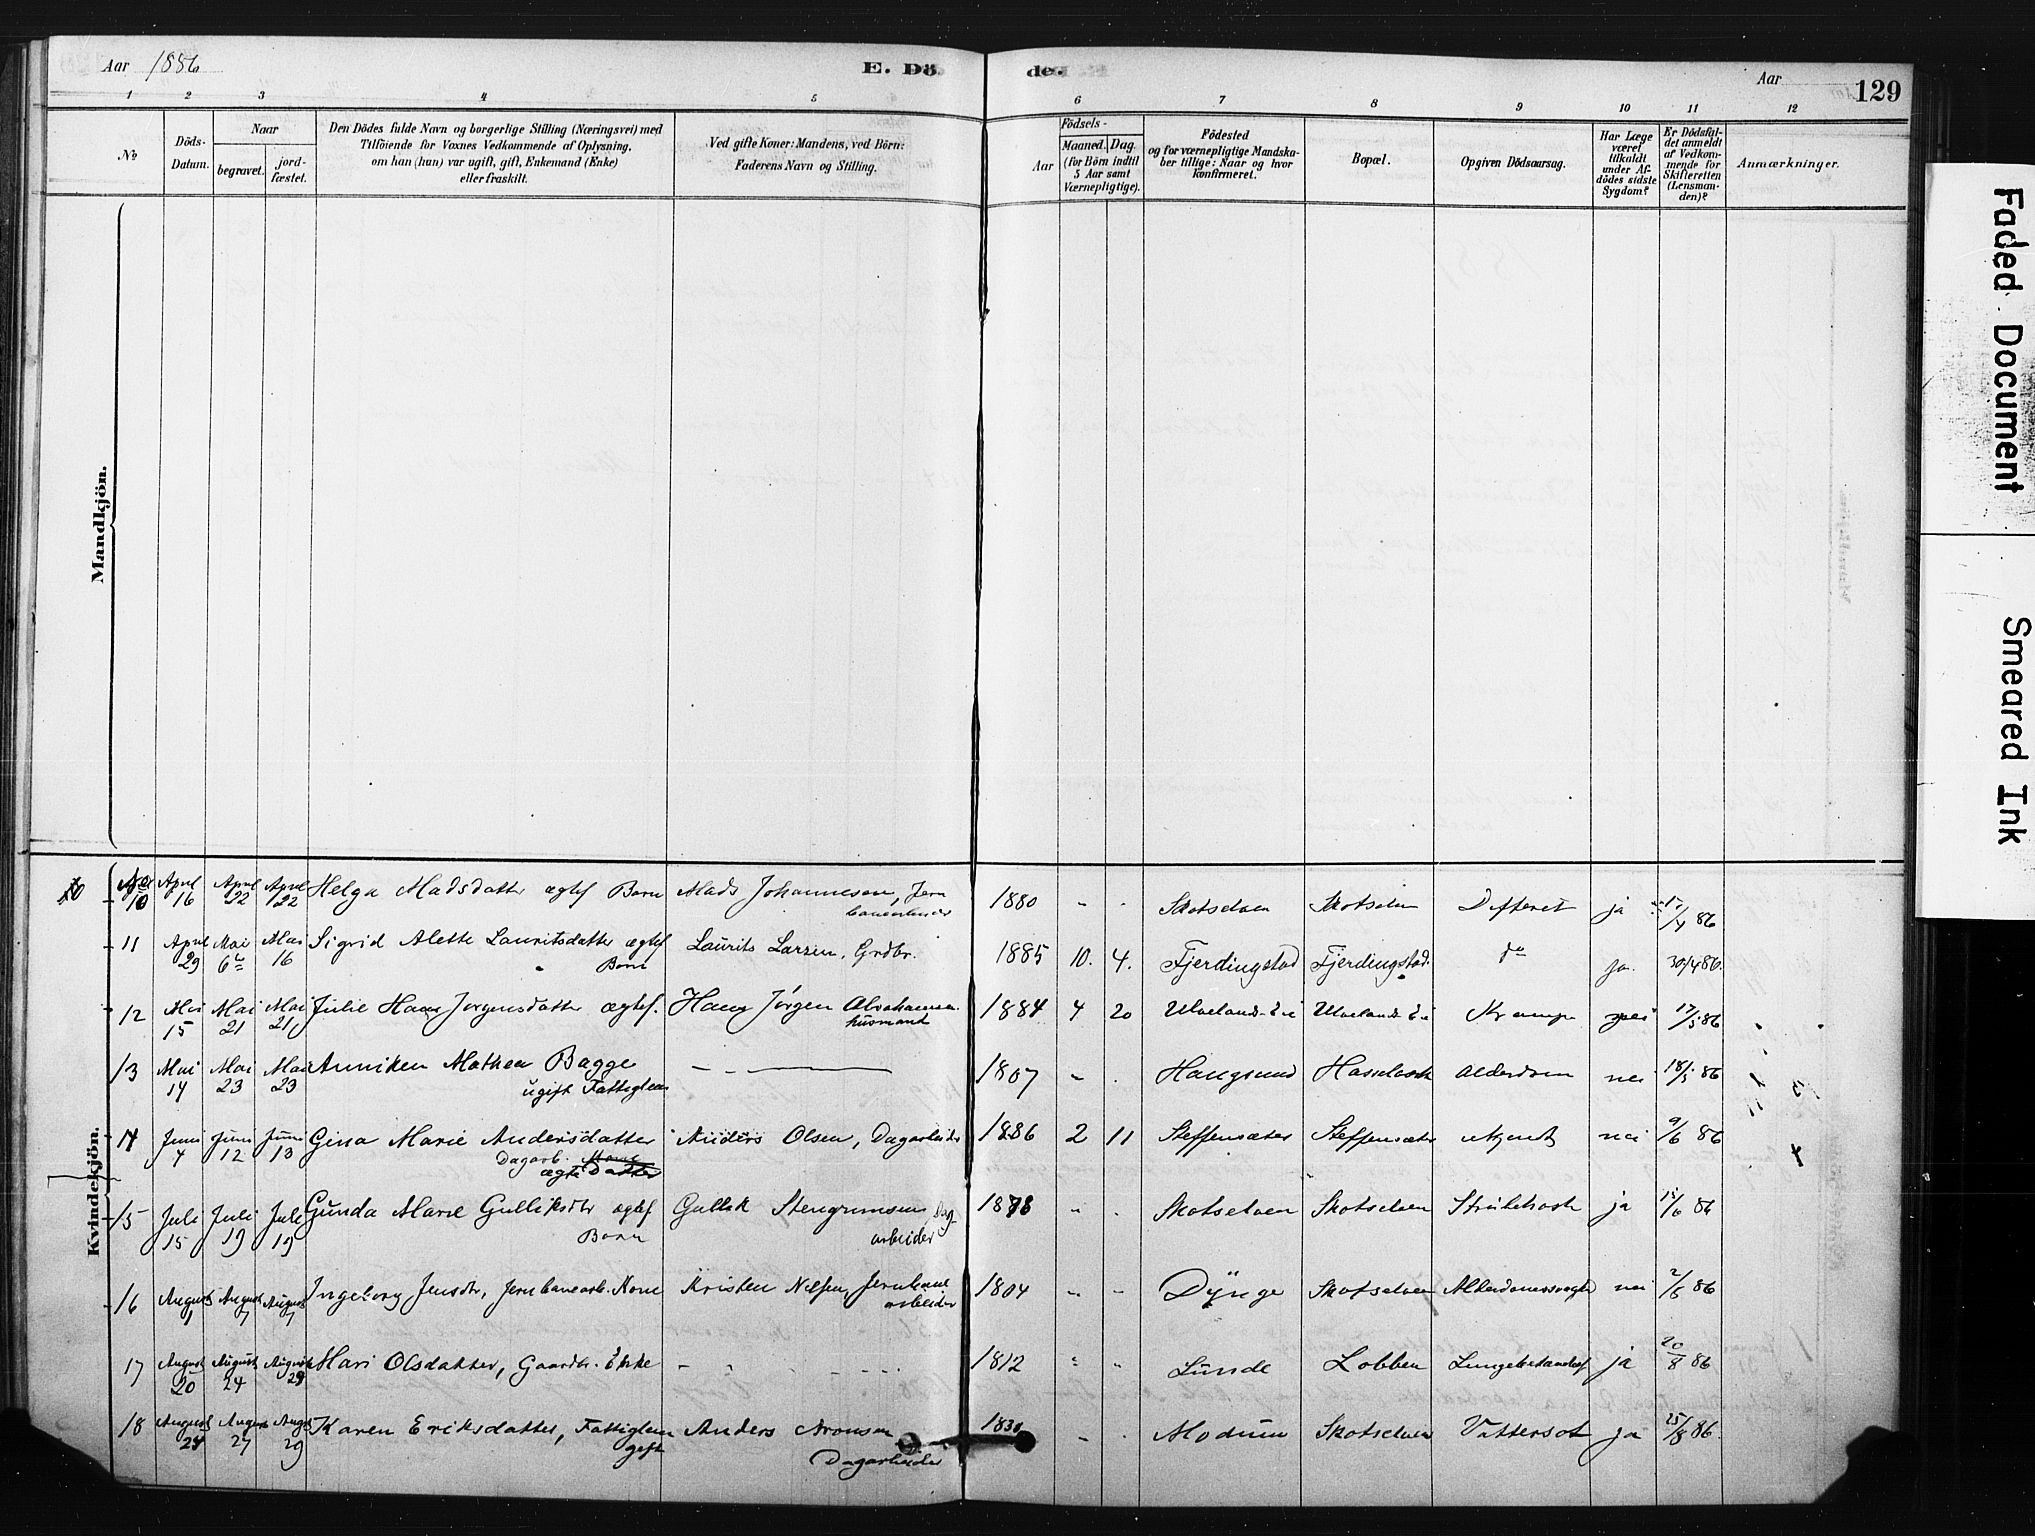 Aar 1886
E. Dö
de.
Aar
129
1 2 3 4 5 6 7 8 9 10 11 12
No
Döds-Datum.
Naar
begravet.
jord-fæstet.
Den Dödes fulde Navn og borgerlige Stilling (Næringsvei) med
Tilföiende for Voxnes Vedkommende af Oplysning,
om han (hun) var ugift, gift, Enkemand (Enke)
eller fraskilt.
Ved gifte Koner: Mandens, ved Börn:
Faderens Navn og Stilling.
Födsels-
Aar
Maaned. Dag.
(for Börn indtil
5 Aar samt
Værnepligtige).
Födested
og for værnepligtige Mandska-
ber tillige: Naar og hvor
konfirmeret.
Bopæl.
Opgiven Dödsaarsag.
Har Læge
været
tilkaldt
under Af-
dödes sidste
Sygdom?
Er Dödsfal-
det anmeldt
af Vedkom-
mende for
Skifteretten
(Lensman-
den)?
Anmærkninger.
Mandkjön.
Kvindekjön.
10 April 16 April 22 April 22 Helga Madsdatter ægtef Barn Mads Johannesen, Jern 1880 - - Skotselven Skotselven Difterit ja 17/4 86
11 April 29 Mai 6te Mai 16 Sigrid Alette Lauritsdatter ægtef Barn Laurits Larsen, Grdbr. 1885 10. 4. Fjerdingstad Fjerdingstad. do ja. 30/4 86.
12 Mai 15 Mai 21 Mai 21 Julie Hans Jørgensdatter ægtef. Hans Jørgen Abrahamsen husmand 1884 4 20 Ulvelands Eie Ulvelands Eie Krampe nei 17/5 86
13 Mai 14 Mai 23 Mai 23 Anniken Mathea Bagge ugift Fattiglem - - - 1807 - . Haugsund Alderdom nei 18/5 86
14 Juni 4 Juni 12 Juni 13 Gina Marie Andersdatter Dagarb. ægte Datter Anders Olsen, Dagarbeider 1886 2 11 Steffensæter Steffensæter ukjendt nei 9/6 86
15 Juli 15 Juli 19 Juli 19 Gunda Marie Gulliksdtr ægtef Barn Gullik Stengrimsen Dagarbeider 1878 - . Skotselven Skotselven Strubehoste ja 15/6 86
16 August 1 August 7 August 7 Ingeborg Jensdtr, Jernbanearb. Kone Kristen Nilsen, Jernbanearbeider 1804 - - Dynge Skotselven Alderdomssvaghed nei 2/8 86
17 August 20 August 24 August 29 Mari Olsdatter, Gaardbr. Enke - - - - 1812 - - Lunde Lobben ja 20/8 86
18 August 24 August 27 August 29 Karen Eriksdatter, Fattiglem gift Anders Aronsen Dagarbeider 1830 - . Modum Skotselven Vattersot ja 25/8 86.
Faded Document
Smeared Ink